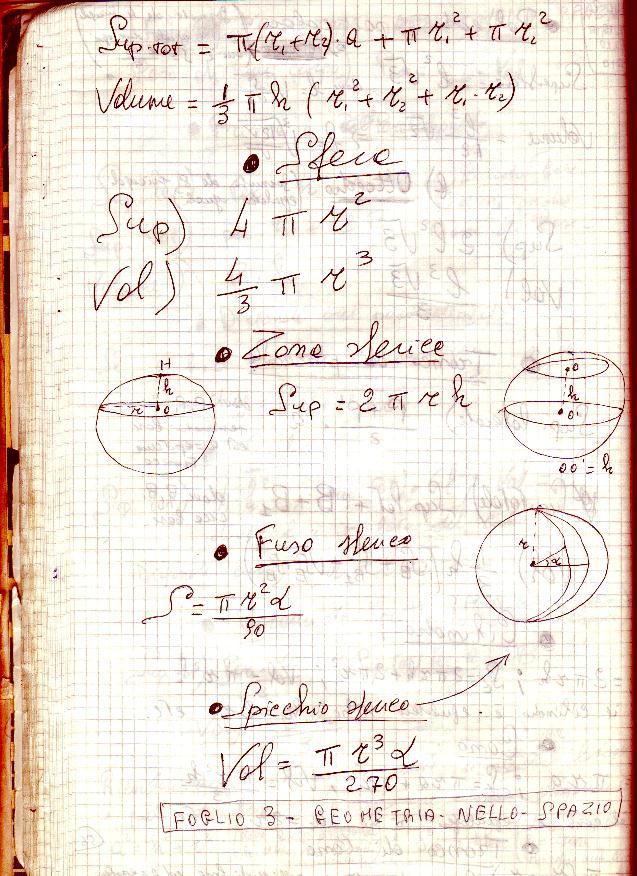 Sup. tot = π(r₁+r₂)·a + πr₁² + πr₂²
Volume = 1/3 π h (r₁² + r₂² + r₁·r₂)
• Sfera
Sup) 4 π r²
Vol) 4/3 π r³
• Zona sferica
Sup = 2 π r h
H
h
r
O
O
h
O'
OO' = h
• Fuso sferico
S = πr²α/90
r
α
• Spicchio sferico
Vol = π r³ α/270
FOGLIO 3 - GEOMETRIA - NELLO - SPAZIO